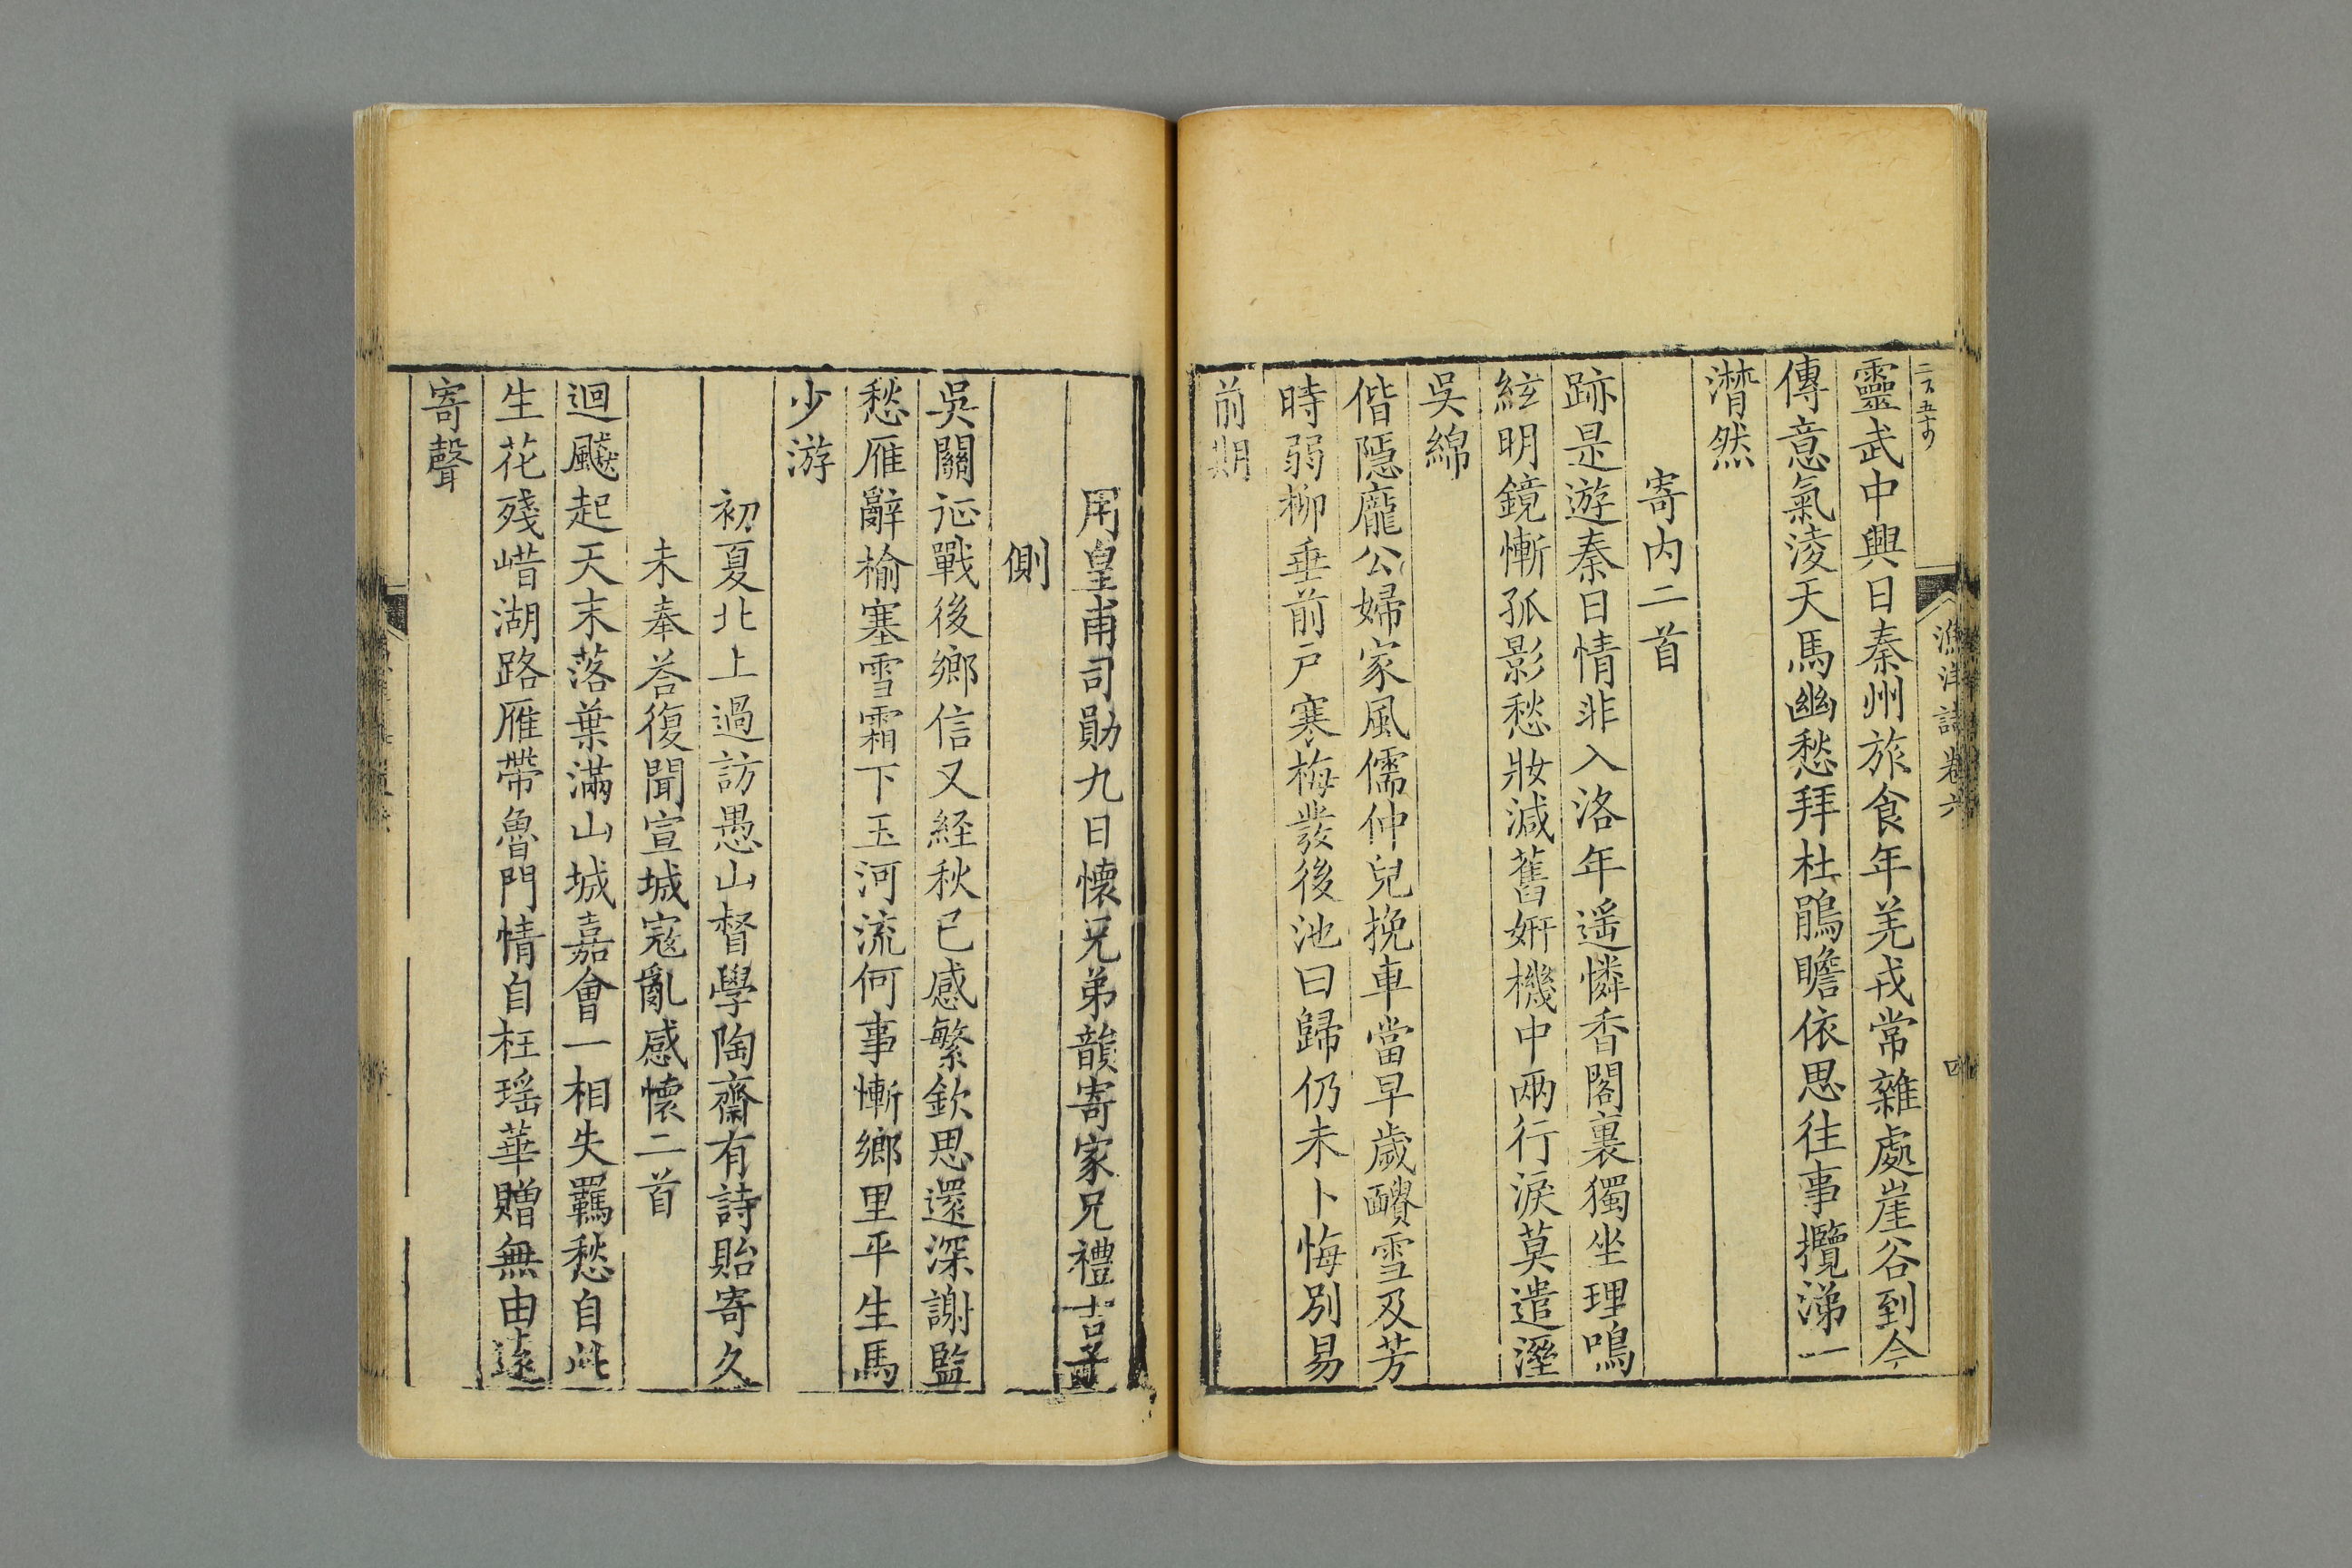 靈武中興日秦州旅食年羌戎常雜處崖谷到今
傳意氣淩天馬幽愁拜杜鵑瞻依思往事攬涕一
潸然
寄内二首
跡是遊秦日情非入洛年遥憐香閣裏獨坐理鳴
絃明鏡慚孤影愁妝減舊妍機中兩行淚莫遣溼
吳綿
偕隱龐公婦家風儒仲兒挽車當早歲醻雪及芳
時弱柳垂前戸寒梅發後池曰歸仍未卜悔別易
前期
用皇甫司勛九日懷兄弟韻寄家兄禮吉子
側
吳關征戰後鄉信又經秋已感繁欽思還深謝監
愁雁辭榆塞雪霜下玉河流何事慚鄉里平生馬
少游
初夏北上過訪愚山督學陶齋有詩貽寄久
未奉荅復聞宣城寇亂感懷二首
迴飈起天末落葉滿山城嘉會一相失羈愁自此
生花殘㟙湖路雁帶魯門情自枉瑶華贈無由遠
寄聲
漁洋詩卷六
四